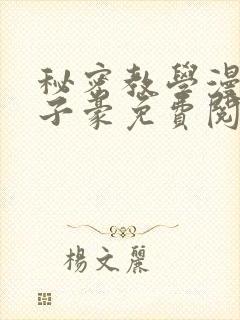 秘密教學漫
子豪免費閱
楊文麗